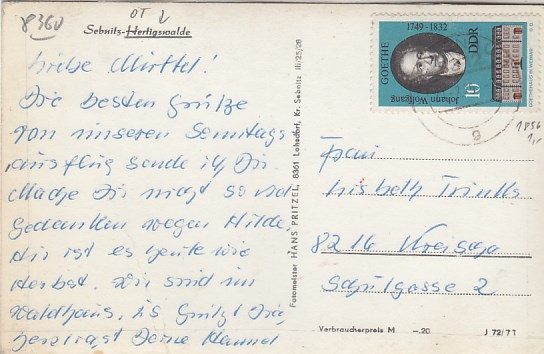 8360
OT
Sebnitz-Hertigswalde
Die besten Grüße
von unseren Sonntags
ausflug sende ich Dir.
Mache Dir nicht so viel
Gedanken wegen Hilde,
hier ist es heute wie
Herbst. Wir sind im
Waldhaus, es grüßt Dich
herzlichst Deine
Fotomeister HANS FRITZEL, 8361 Lohsdorf, Kr. Sebnitz III/25/08
GOETHE
1749-1832
Johann Wolfgang
DDR
10
g
1856
1,-
Frau
Lisbeth
8216
Schulgasse 2
Verbraucherpreis M —.20
J 72/71